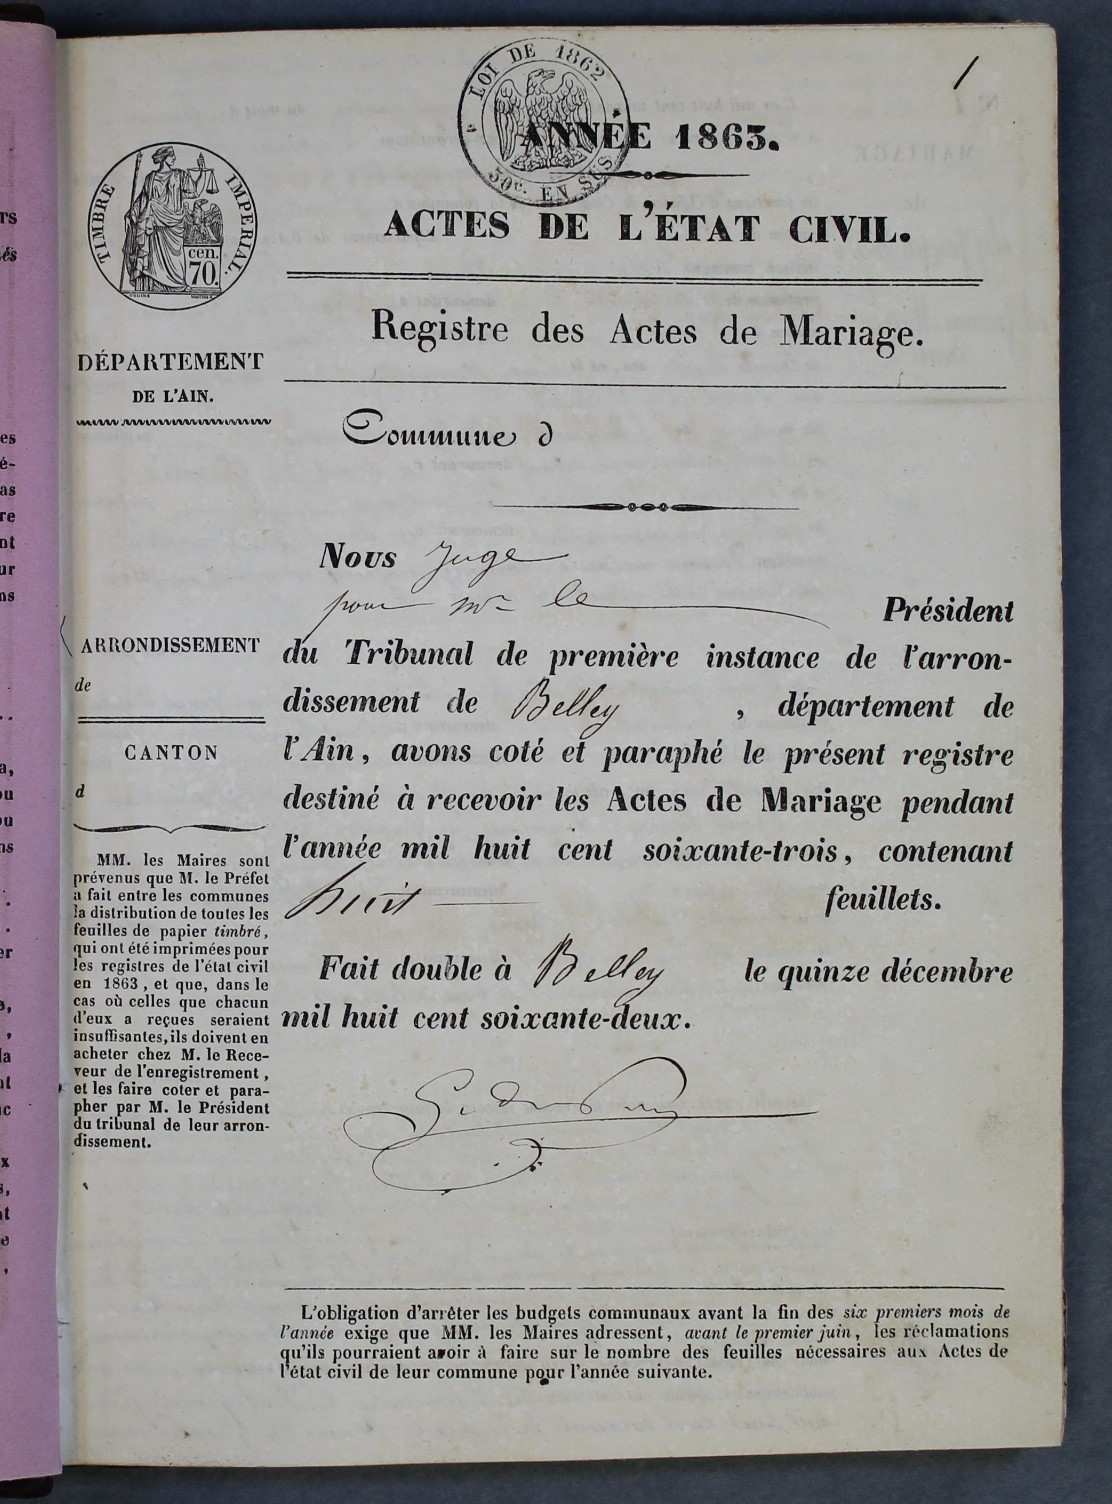 1
LOI DE 1862
50c. EN SUS.
ANNÉE 1863.
ACTES DE L'ÉTAT CIVIL.
Registre des Actes de Mariage.
TIMBRE IMPERIAL.
cen.
70.
DÉPARTEMENT
DE L'AIN.
Commune d
Nous Juge
pour Mr le Président
du Tribunal de première instance de l'arron-
dissement de Belley , département de
l'Ain, avons coté et paraphé le présent registre
destiné à recevoir les Actes de Mariage pendant
l'année mil huit cent soixante-trois, contenant
huit feuillets.
Fait double à Belley le quinze décembre
mil huit cent soixante-deux.
ARRONDISSEMENT
de
CANTON
d
MM. les Maires sont
prévenus que M. le Préfet
a fait entre les communes
la distribution de toutes les
feuilles de papier timbré,
qui ont été imprimées pour
les registres de l'état civil
en 1863, et que, dans le
cas où celles que chacun
d'eux a reçues seraient
insuffisantes, ils doivent en
acheter chez M. le Rece-
veur de l'enregistrement,
et les faire coter et para-
pher par M. le Président
du tribunal de leur arron-
dissement.
L'obligation d'arrêter les budgets communaux avant la fin des six premiers mois de
l'année exige que MM. les Maires adressent, avant le premier juin, les réclamations
qu'ils pourraient avoir à faire sur le nombre des feuilles nécessaires aux Actes de
l'état civil de leur commune pour l'année suivante.